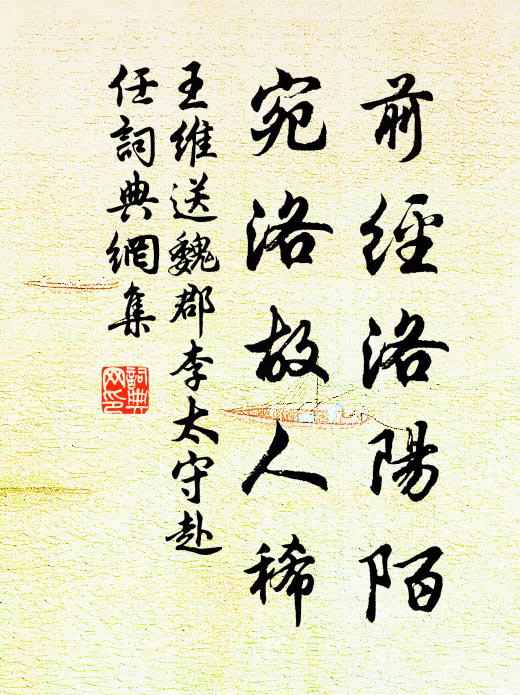 前經洛陽陌
宛洛故人稀
王維送魏郡李太守赴
任詞典網集
詞典網印